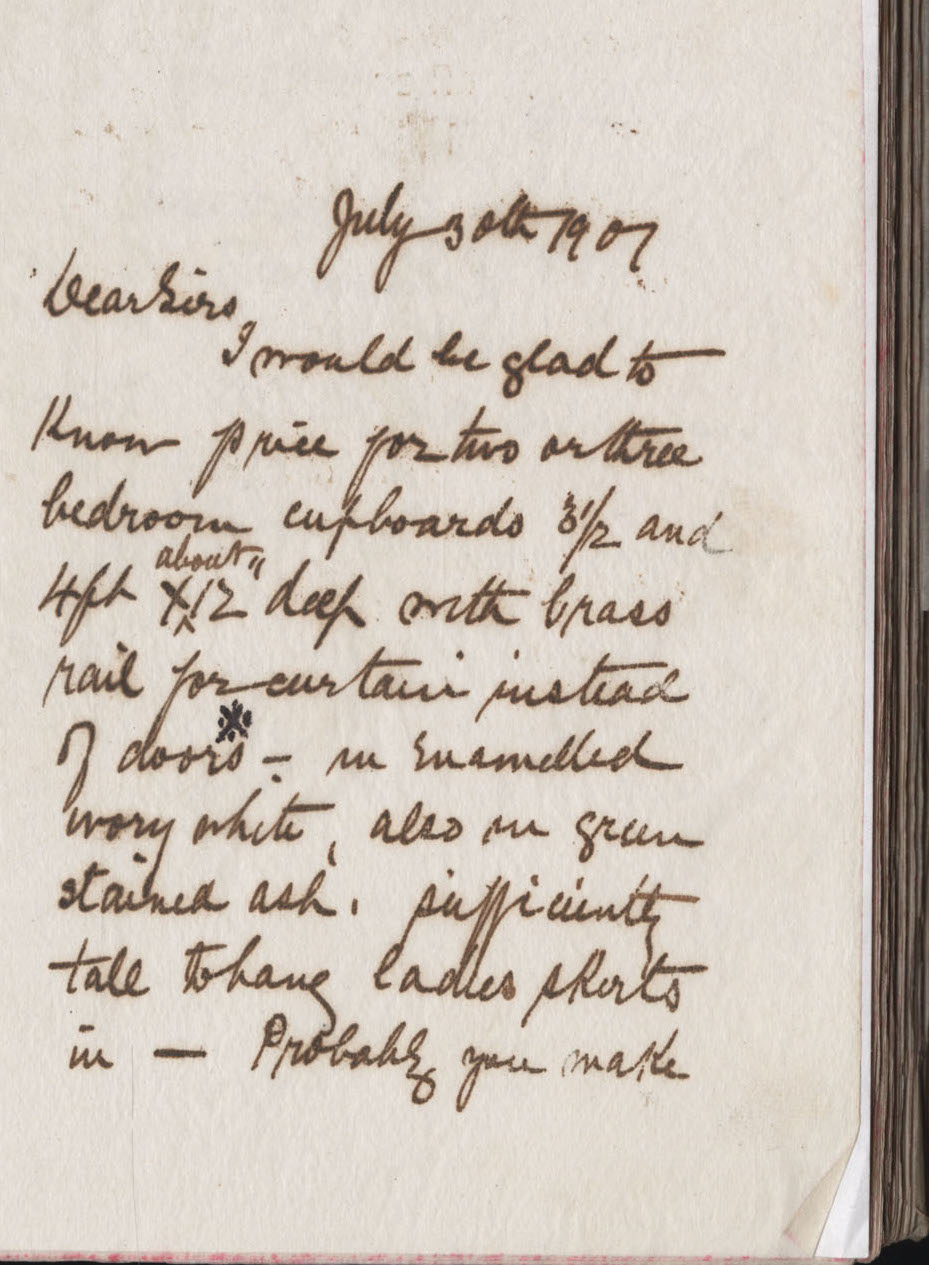 July 30th 1907
Dear Sirs,
I would be glad to
Know price for two or three
bedroom cupboards 3 1/2 and
about "
4ft X 12 deep with brass
rail for curtain instead
of doors - in Enamelled
ivory white, also in green
stained ash. sufficiently
tall to hang ladies skirts
in — Probably you make